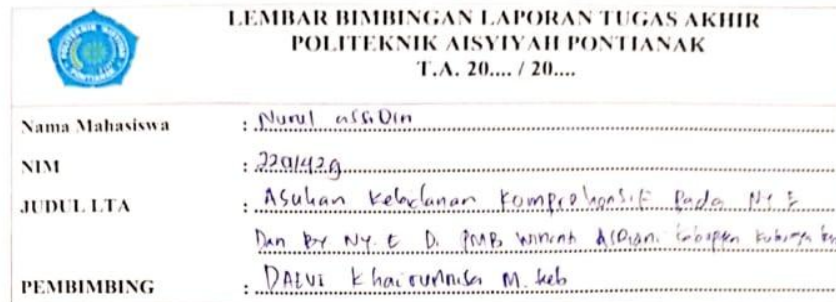 LEMBAR BIMBINGAN LAPORAN TUGAS AKHIR
POLITEKNIK AISYIYAH PONTIANAK
T.A. 20.... / 20....
Nama Mahasiswa : Nurul assidin
NIM :
JUDUL LTA : Asuhan Kebidanan Komprehensif Pada NY E
Dan BY NY. E Di PMB
PEMBIMBING : DALVI Khairunnisa M. keb